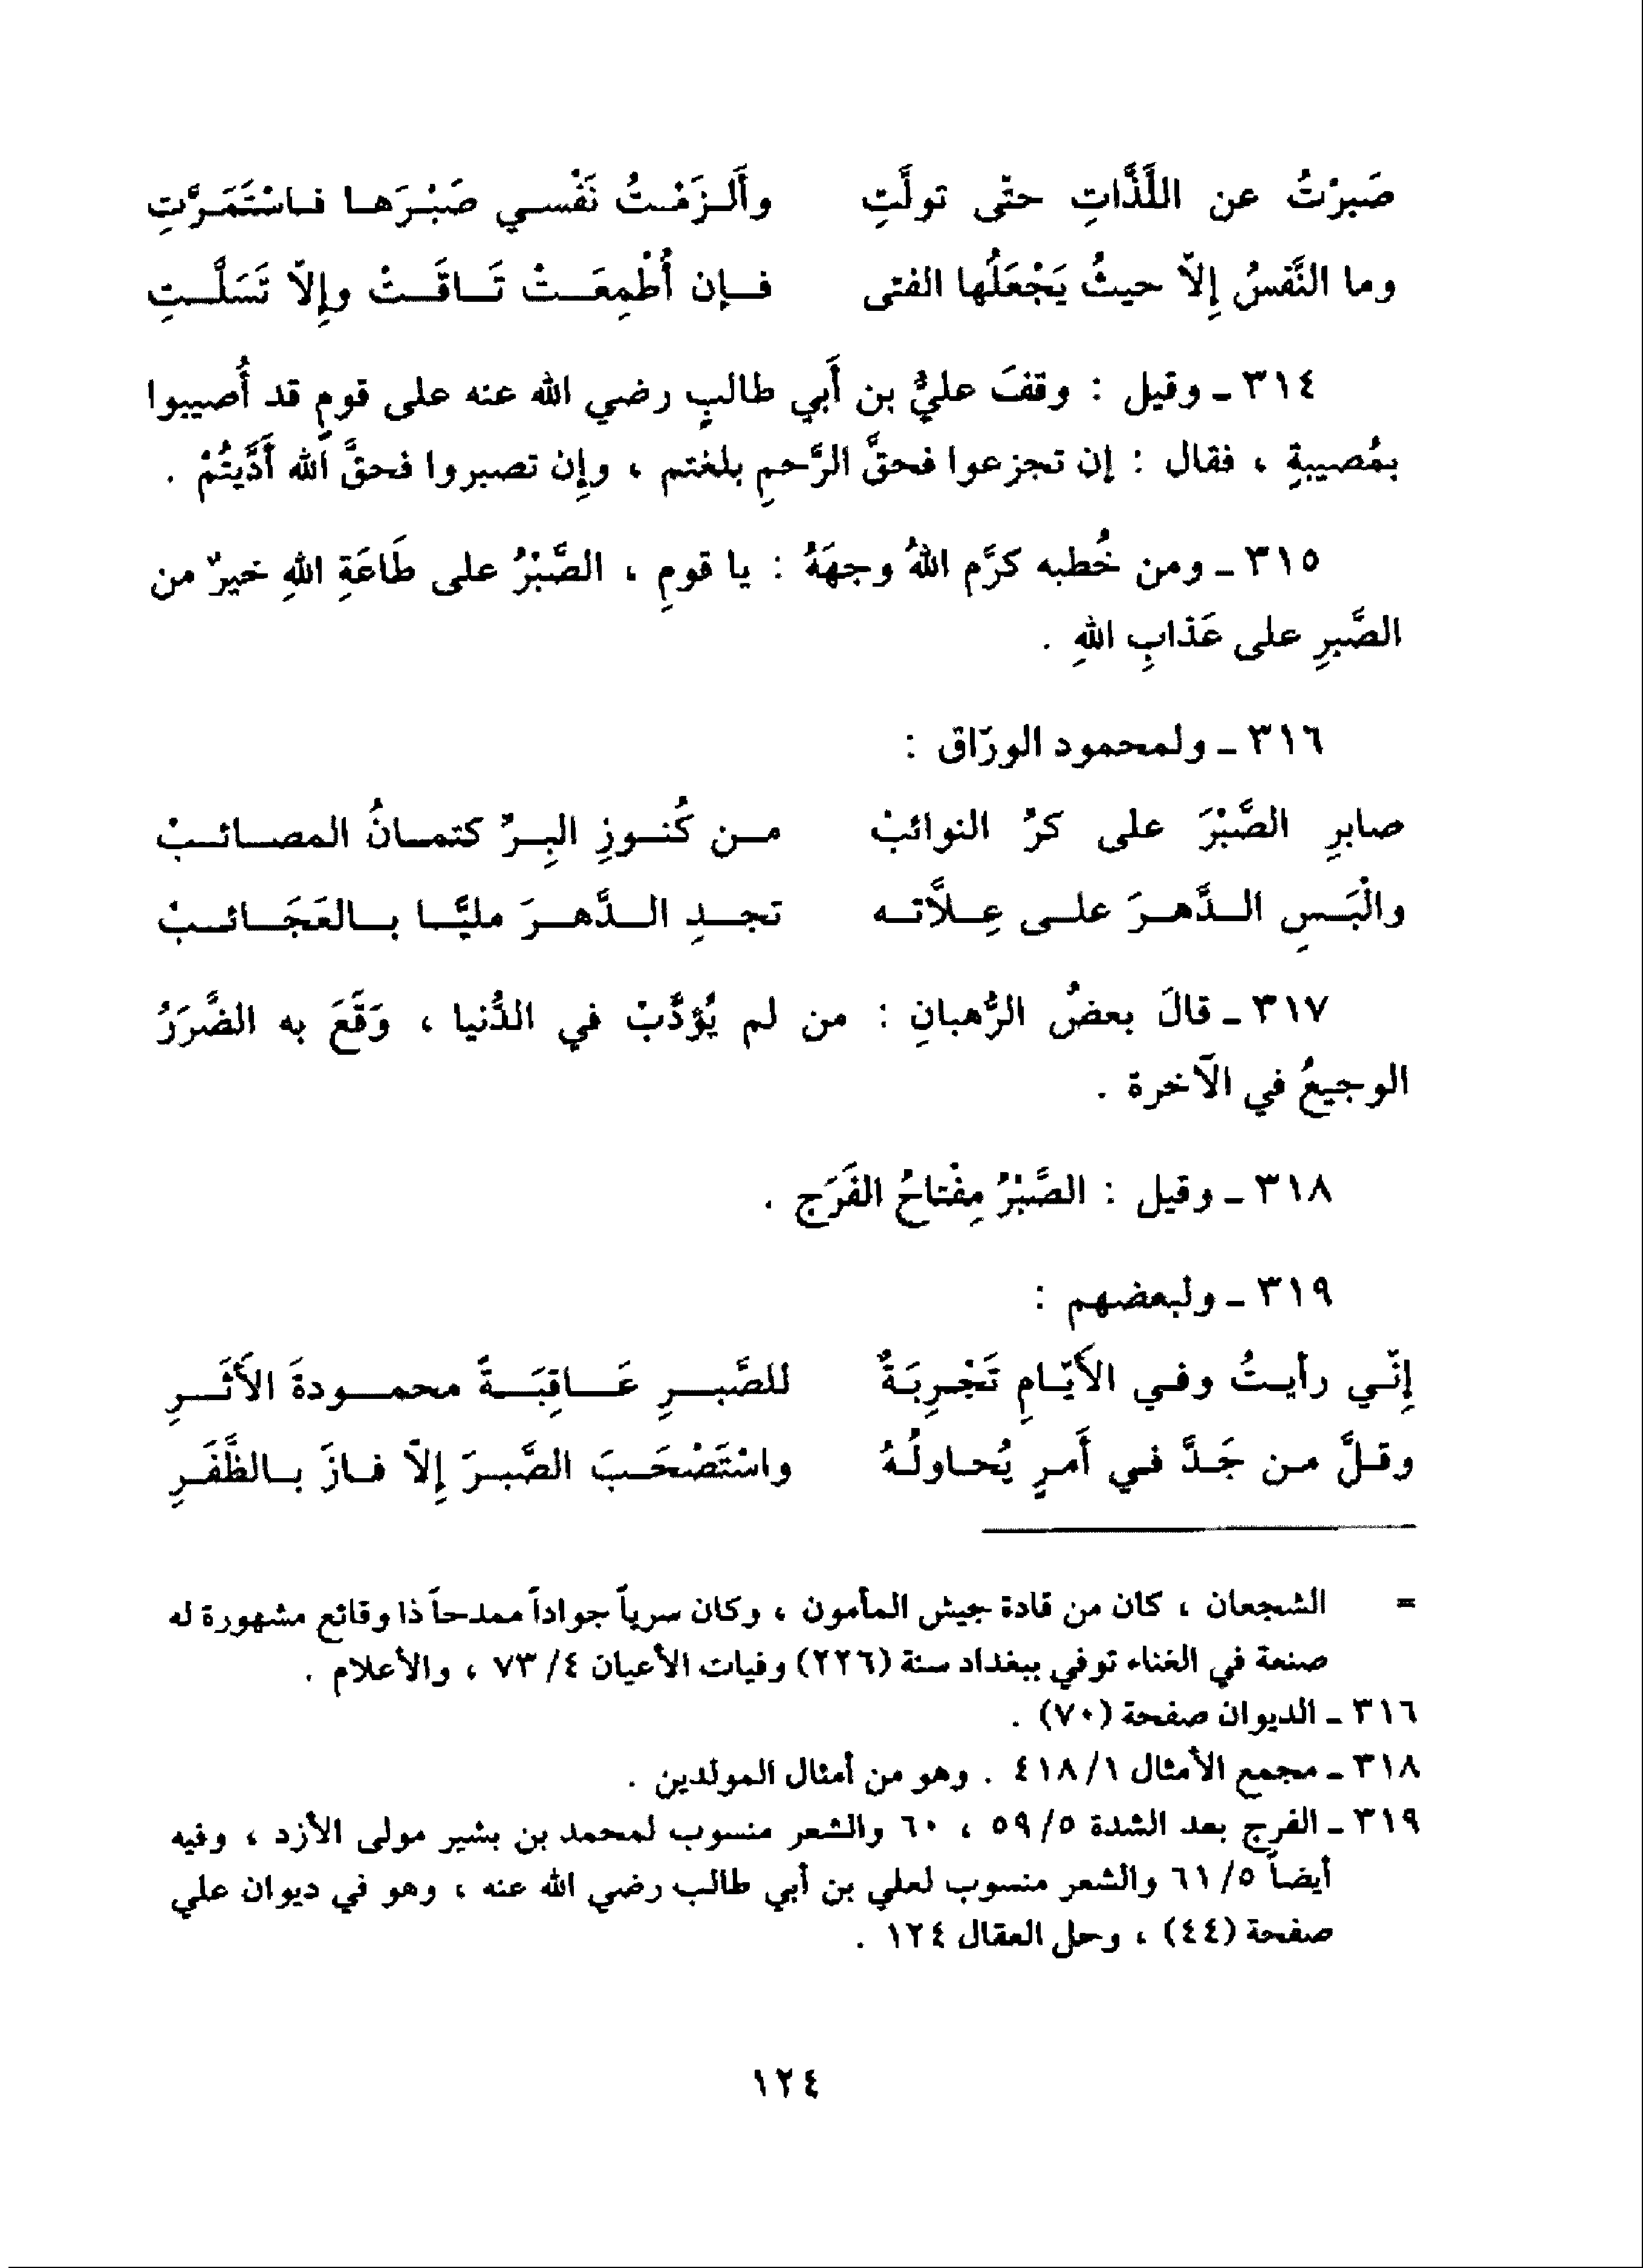 صَبرْتُ عن اللَّذَّاتِ حتّى تولَّتِ وأَلـزَمْـتُ نَفْسـي صَبْـرَهـا فـاسْتَمَـرَّتِ
وما النَّفسُ إِلاّ حيثُ يَجْعَلُها الفتى فـإِن أُطْمِعَـتْ تَـاقَـتْ وإِلاّ تَسَلَّـتِ
٣١٤ ـ وقيل : وقفَ عليُّ بن أَبي طالبٍ رضي الله عنه على قومٍ قد أُصيبوا
بمُصيبةٍ ، فقال : إِن تجزعوا فحقَّ الرَّحمِ بلغتم ، وإِن تصبروا فحقَّ اللهَ أَدَّيتُمْ .
٣١٥ ـ ومن خُطبه كرَّم اللهُ وجهَهُ : يا قومِ ، الصَّبْرُ على طَاعَةِ اللهِ خيرٌ من
الصَّبرِ على عَذابِ اللهِ .
٣١٦ ـ ولمحمود الورّاق :
صابرِ الصَّبْرَ على كرِّ النوائبْ مـن كُنـوزِ البِـرِّ كتمـانُ المصـائـبْ
والْبَـسِ الـدَّهـرَ علـى عِـلاَّتـه تجـدِ الـدَّهـرَ مليَّـا بـالعَجَـائـبْ
٣١٧ ـ قالَ بعضُ الرُّهبانِ : من لم يُؤدَّبْ في الدُّنيا ، وَقَّعَ به الضَّرَرُ
الوجيعُ في الآخرة .
٣١٨ ـ وقيل : الصَّبْرُ مِفْتاحُ الفَرَج .
٣١٩ ـ ولبعضهم :
إِنّـي رأيـتُ وفـي الأَيّـامِ تَجْـرِبَـةٌ للصَّبـرِ عَـاقِبَـةً محمـودةَ الأَثَـرِ
وقـلَّ مـن جَـدَّ فـي أَمـرٍ يُحـاولُـهُ واسْتَصْحَـبَ الصَّبـرَ إِلاّ فـازَ بـالظَّفَـرِ
= الشجعان ، كان من قادة جيش المأمون ، وكان سرياً جواداً ممدحاً ذا وقائع مشهورة له
صنعة في الغناء توفي ببغداد سنة (٢٢٦) وفيات الأعيان ٤/ ٧٣ ، والأعلام .
٣١٦ ـ الديوان صفحة (٧٠) .
٣١٨ ـ مجمع الأمثال ١/ ٤١٨ . وهو من أمثال المولدين .
٣١٩ ـ الفرج بعد الشدة ٥/ ٥٩ ، ٦٠ والشعر منسوب لمحمد بن بشير مولى الأزد ، وفيه
أيضاً ٥/ ٦١ والشعر منسوب لعلي بن أبي طالب رضي الله عنه ، وهو في ديوان علي
صفحة (٤٤) ، وحل العقال ١٢٤ .
١٢٤